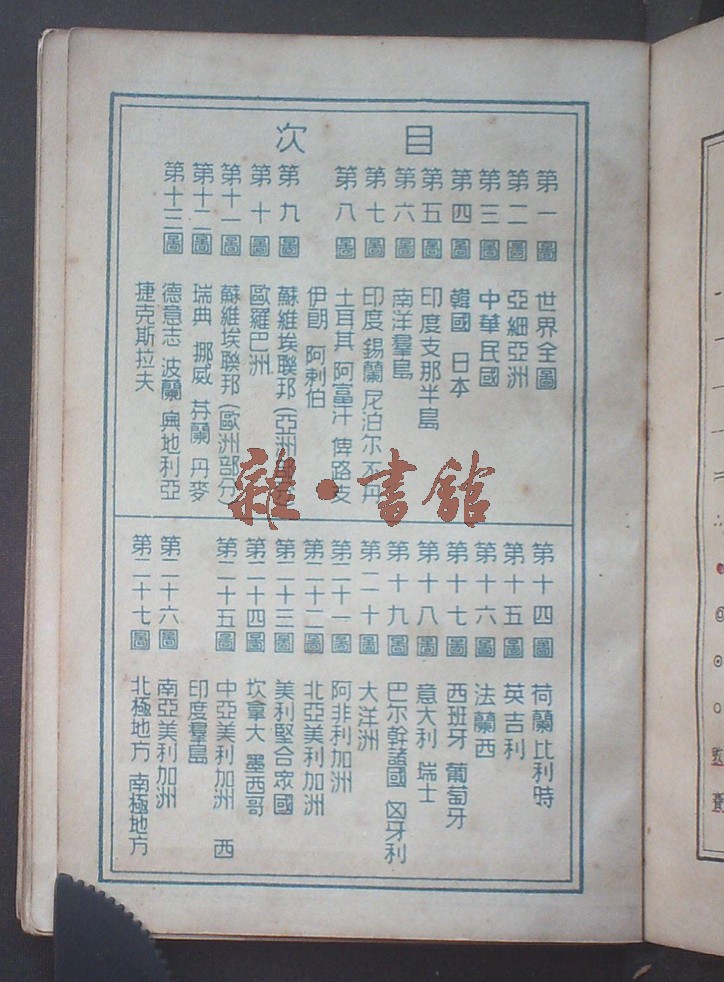 目次
第一圖 世界全圖
第二圖 亞細亞洲
第三圖 中華民國
第四圖 韓國 日本
第五圖 印度支那半島
第六圖 南洋羣島
第七圖 印度 錫蘭 尼泊尔 不丹
第八圖 土耳其 阿富汗 俾路支
伊朗 阿剌伯
第九圖 蘇維埃聯邦(亞洲部分
第十圖 歐羅巴洲
第十一圖 蘇維埃聯邦(歐洲部分
第十二圖 瑞典 挪威 芬蘭 丹麥
第十三圖 德意志 波蘭 奧地利亞
捷克斯拉夫
第十四圖 荷蘭比利時
第十五圖 英吉利
第十六圖 法蘭西
第十七圖 西班牙 葡萄牙
第十八圖 意大利 瑞士
第十九圖 巴尔幹諸國 匈牙利
第二十圖 大洋洲
第二十一圖 阿非利加洲
第二十二圖 北亞美利加洲
第二十三圖 美利堅合眾國
第二十四圖 坎拿大 墨西哥
第二十五圖 中亞美利加洲 西
印度羣島
第二十六圖 南亞美利加洲
第二十七圖 北極地方 南極地方
雜·書館